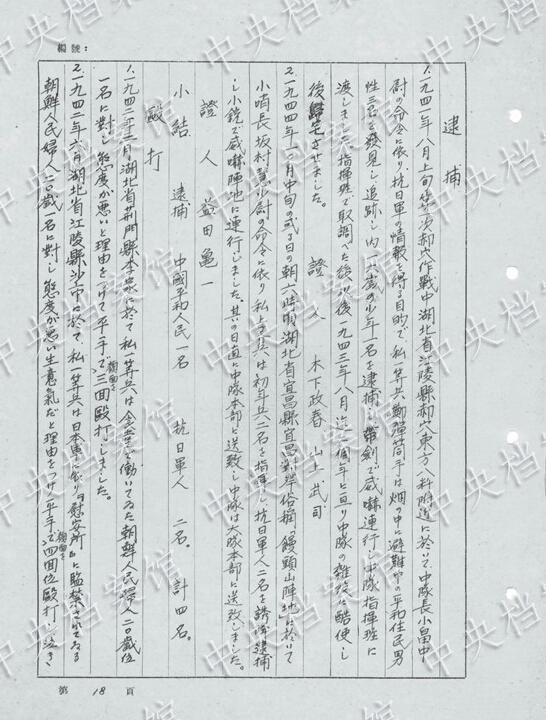 編號：
逮捕
1.一九四一年八月上旬第一次郝穴作戰中湖北省江陵縣郝穴東方八粁附近に於いて、中隊長小畠中
尉の命令に依り、抗日軍の情報を得る目的で、私一等兵擲彈筒手は畑の中に避難中の平和住民男
性三名を發見し追跡し内一六歳の少年一名を逮捕し帶劍で威嚇連行し中隊指揮班に
渡しました。指揮班で取調べた後以後一九四三年八月迄二個年に亘り中隊の雜役に酷使し
後 させました。
證人 木下政春 山上武司
2.一九四四年一月中旬の或る日の朝六時頃湖北省宜昌縣宜昌對岸俗稱「饅頭山陣地」に於いて
小哨長坂村 少尉の命令に依り私上等兵は初年兵二名を指揮し抗日軍人二名を誘 逮捕
し小銃で威嚇陣地に連行しました。其の日直に中隊本部に送致し中隊は大隊本部に送致しました。
證人 益田亀一
小結 逮捕 中國平和人民一名 抗日軍人 二名。 計四名。
毆打
1.一九四 年 月湖北省荊門縣 に於て私一等兵は で働いてゐた朝鮮人民婦人二〇歳位
一名に對し態度が悪いと理由をつけて平手で顔面を三回毆打しました。
2.一九四二年六月湖北省江陵縣沙市に於て私一等兵は日本軍に依り「慰安所」に監禁されてゐる
朝鮮人民婦人二〇歳一名に對し態度が悪い生意氣だと理由をつけ平手で顔面を四回位毆打し泣き
第 18 頁
中央档案馆